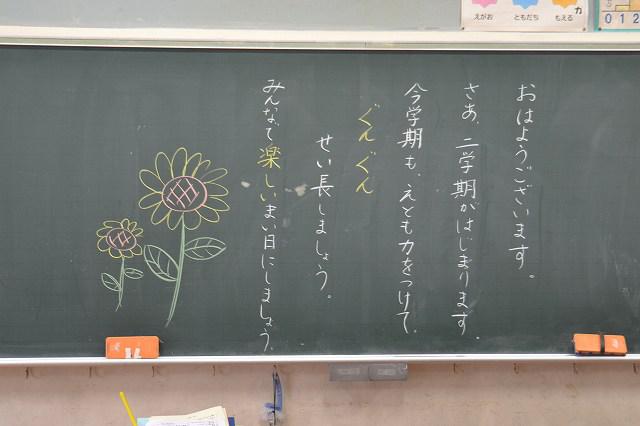 おはようございます。
さあ、二学期がはじまります。
今学期も、えとも力をつけて、
ぐんぐん
せい長しましょう。
みんなで楽しいまい日にしましょう。
えがお
ともだち
もえる力
0 1 2